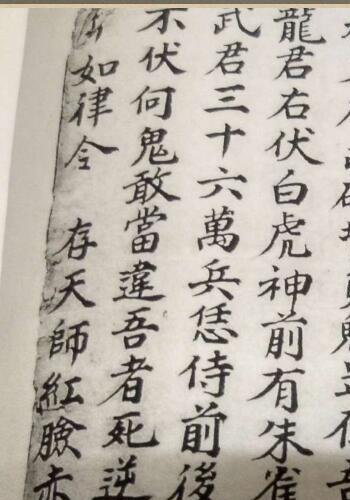 龍君右伏白虎神前有朱雀
武君三十六萬兵恁侍前後
不伏何鬼敢當違吾者死逆
如律令 存天師紅臉赤